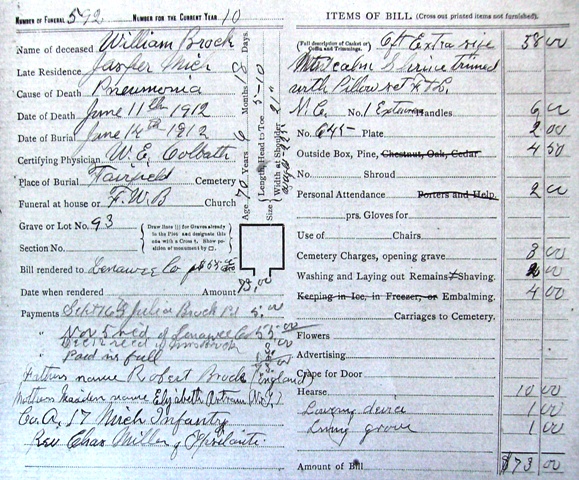 NUMBER OF FUNERAL 592 NUMBER FOR THE CURRENT YEAR 10
Name of deceased William Brock
Late Residence Jasper Mich
Cause of Death Pneumonia
Date of Death June 11th 1912
Date of Burial June 14th 1912
Certifying Physician W. E. Colbath
Place of Burial Fairfield Cemetery
Funeral at house or F. W. B Church
Grave or Lot No. 93
Section No.
{Draw lines || for Graves already in the Plot and designate this one with a Cross †. Show position of monument by □.}
Bill rendered to Lenawee Co
Date when rendered Amount 73,00
Payments Julia Brock Pd 5,00
" Nov 5 recd of Lenawee Co 55,00
Paid in full
Fathers name Robert Brock (England)
Mothers maiden name Elizabeth (N.Y.)
Co. A, 17 Mich Infantry
Rev Chas Miller of Ypsilanti
Age 70 Years 6 Months 18 Days.
Size { Length, Head to Toe 5-10
Width at Shoulder 21"
ITEMS OF BILL (Cross out printed items not furnished).
(Full description of Casket or Coffin and Trimmings. 6ft Extra size 58 00
trimed
with Pillow set
No. 1 Handles 6 00
No. 645- Plate 2 00
Outside Box, Pine, Chestnut, Oak, Cedar 4 50
No. Shroud
Personal Attendance Porters and Help. 2 00
prs. Gloves for
Use of Chairs
Cemetery Charges, opening grave 3 00
Washing and Laying out Remains Shaving. 2 00
Keeping in Ice, in Freezer, or Embalming. 4 00
Carriages to Cemetery.
Flowers
Advertising
Crape for Door
Hearse 10 00
Lowering device 1 00
Lining grave 1 00
Amount of Bill $73 00